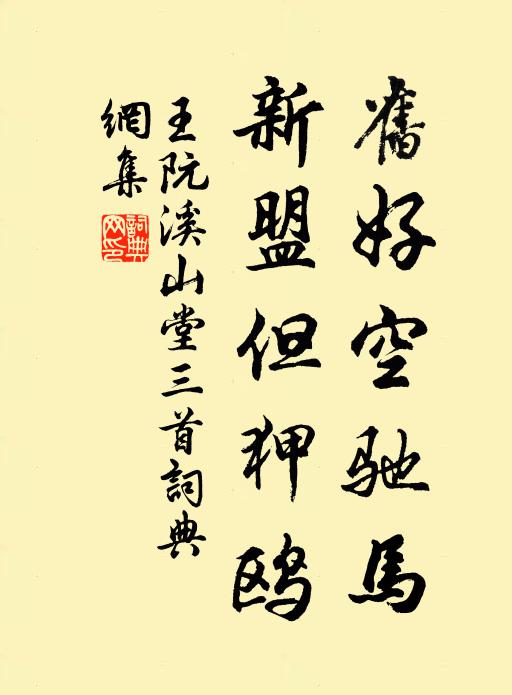 舊好空馳馬
新盟但狎鷗
王阮溪山堂三首詞典
網集
詞典
网印